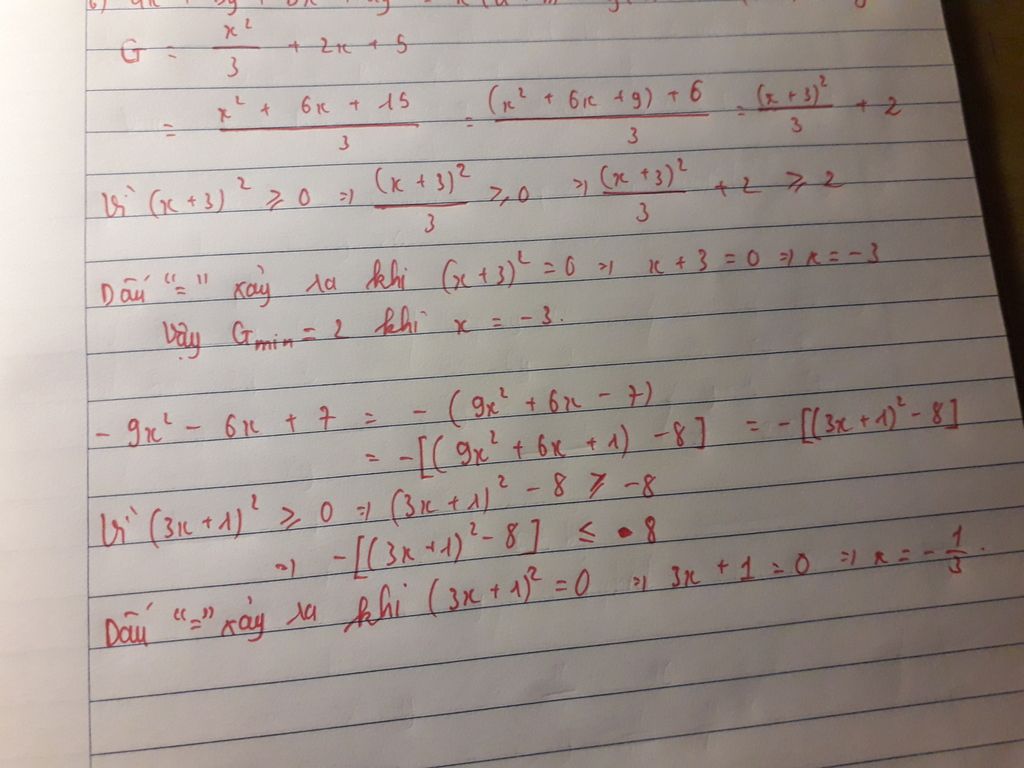 G = x²/3 + 2x + 5
= (x² + 6x + 15)/3 = ((x² + 6x + 9) + 6)/3 = (x + 3)²/3 + 2
Vì (x + 3)² ≥ 0 ⇒ (x + 3)²/3 ≥ 0 ⇒ (x + 3)²/3 + 2 ≥ 2
Dấu "=" xảy ra khi (x + 3)² = 0 ⇒ x + 3 = 0 ⇒ x = -3
Vậy Gmin = 2 khi x = -3.
- 9x² - 6x + 7 = - (9x² + 6x - 7)
= -[(9x² + 6x + 1) - 8] = -[(3x + 1)² - 8]
Vì (3x + 1)² ≥ 0 ⇒ (3x + 1)² - 8 ≥ -8
⇒ -[(3x + 1)² - 8] ≤ 8
Dấu "=" xảy ra khi (3x + 1)² = 0 ⇒ 3x + 1 = 0 ⇒ x = -1/3.